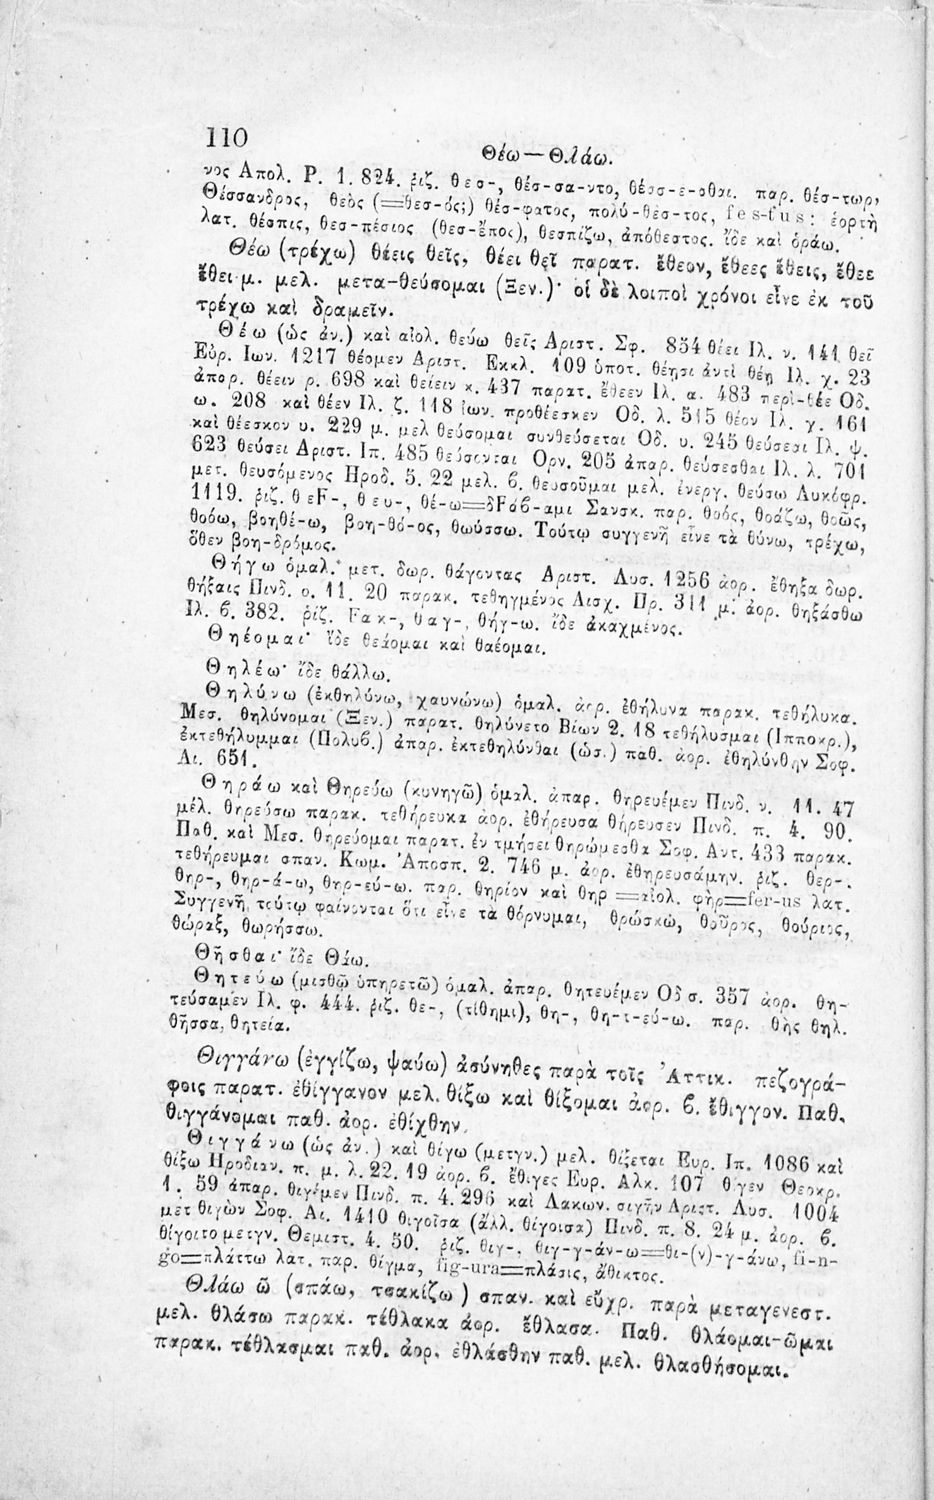 110
Θέω — Θλάω.
νος Απολ. Ρ. 1. 824. ῥιζ. θεσ-, θέσ-σα-ντο, θέσσ-ε-σθαι. παρ. θέσ-τωρ,
Θέσσανδρος, θεὸς (=θεσ-ός;) θέσ-φατος, πολύ-θεσ-τος, fes-tus: ἑορτὴ
λατ. θέσπις, θεσ-πέσιος (θεσ-ἔπος), θεσπίζω, ἀπόθεστος. ἴδε καὶ ὁράω.
Θέω (τρέχω) θέεις θεῖς, θέει θεῖ παρατ. ἔθεον, ἔθεες ἔθεις, ἔθεε
ἔθει· μ. μελ. μετα-θεύσομαι (Ξεν.)· οἱ δὲ λοιποὶ χρόνοι εἶνε ἐκ τοῦ
τρέχω καὶ δραμεῖν.
Θέω (ὡς ἀν.) καὶ αἰολ. θεύω θεῖς Αριστ. Σφ. 854 θέει Ιλ. ν. 141 θεῖ
Εὐρ. Ιων. 1217 θέομεν Αριστ. Εκκλ. 109 ὑποτ. θέῃσι ἀντὶ θέῃ Ιλ. χ. 23
ἀπαρ. θέειν ρ. 698 καὶ θείειν κ. 437 παρατ. ἔθεεν Ιλ. α. 483 περὶ-θέε Οδ.
ω. 208 καὶ θέεν Ιλ. ζ. 118 ἰων. προθέεσκεν Οδ. λ. 515 θέον Ιλ. χ. 161
καὶ θέεσκον υ. 229 μ. μελ θεύσομαι συνθεύσεται Οδ. υ. 245 θεύσεσι Ιλ. ψ.
623 θεύσει Αριστ. Ιπ. 485 θεύσονται Ορν. 205 ἀπαρ. θεύσεσθαι Ιλ. λ. 701
μετ. θευσόμενος Ηροδ. 5. 22 μελ. β. θευσοῦμαι μελ. ἐνεργ. θεύσω Λυκόφρ.
1119. ῥιζ. θεF-, θευ-, θέ-ω=δFάβ-αμι Σανσκ. παρ. θοός, θοάζω, θοῶς,
θοόω, βοηθέ-ω, βοη-θό-ος, θωύσσω. Τούτῳ συγγενῆ εἶνε τὰ θύνω, τρέχω,
ὅθεν βοη-δρόμος.
Θήγω ὁμαλ. μετ. δωρ. θάγοντας Αριστ. Λυσ. 1256 ἀορ. ἔθηξα δωρ.
θήξαις Πινδ. ο. 11. 20 παρακ. τεθηγμένος Αισχ. Πρ. 311 μ. ἀορ. θηξάσθω
Ιλ. β. 382. ῥίζ. Fακ-, θαγ-, θήγ-ω. ἴδε ἀκαχμένος.
Θηέομαι· ἴδε θεάομαι καὶ θαέομαι.
Θηλέω· ἴδε θάλλω.
Θηλύνω (ἐκθηλύνω, χαυνώνω) ὁμαλ. ἀορ. ἐθήλυνα παρακ. τεθήλυκα.
Μεσ. θηλύνομαι (Ξεν.) παρατ. θηλύνετο Βίων 2. 18 τεθήλυσμαι (Ιπποκρ.),
ἐκτεθήλυμμαι (Πολυβ.) ἀπαρ. ἐκτεθηλύνθαι (ὡσ.) παθ. ἀορ. ἐθηλύνθην Σοφ.
Αι. 651.
Θηράω καὶ Θηρεύω (κυνηγῶ) ὁμαλ. ἀπαρ. θηρευέμεν Πινδ. ν. 11. 47
μέλ. θηρεύσω παρακ. τεθήρευκα ἀορ. ἐθήρευσα θήρευσεν Πινδ. π. 4. 90.
Παθ. καὶ Μεσ. θηρεύομαι παρατ. ἐν τμήσει θηρώμεσθα Σοφ. Αντ. 433 παρακ.
τεθήρευμαι σπαν. Κωμ. Ἀποσπ. 2. 746 μ. ἀορ. ἐθηρευσάμην. ῥιζ. θερ-.
θηρ-, θηρ-ά-ω, θηρ-εύ-ω. παρ. θηρίον καὶ θηρ=αἰολ. φὴρ=fer-us λατ.
Συγγενῆ τούτῳ φαίνονται ὅτι εἶνε τὰ θόρνυμαι, θρώσκω, θοῦρος, θούριος,
θώραξ, θωρήσσω.
Θῆσθαι· ἴδε Θάω.
Θητεύω (μισθῷ ὑπηρετῶ) ὁμαλ. ἀπαρ. θητευέμεν Οδ σ. 357 ἀορ. θη-
τεύσαμεν Ιλ. φ. 444. ῥιζ. θε-, (τίθημι), θη-, θη-τ-εύ-ω. παρ. θὴς θηλ.
θῆσσα, θητεία.
Θιγγάνω (ἐγγίζω, ψαύω) ἀσύνηθες παρὰ τοῖς Ἀττικ. πεζογρά-
φοις παρατ. ἐθίγγανον μελ. θίξω καὶ θίξομαι ἀορ. β. ἔθιγγον. Παθ.
θιγγάνομαι παθ. ἀορ. ἐθίχθην.
Θιγγάνω (ὡς ἀν.) καὶ θίγω (μετγν.) μελ. θίξεται Ευρ. Ιπ. 1086 καὶ
θίξω Ηροδιαν. π. μ. λ. 22. 19 ἀορ. β. ἔθιγες Ευρ. Αλκ. 107 θιγεν Θεοκρ.
1. 59 ἀπαρ. θιγέμεν Πινδ. π. 4. 296 καὶ Λακων. σιγῆν Αριστ. Λυσ. 1004
μετ θιγὼν Σοφ. Αι. 1410 θιγοῖσα (ἄλλ. θίγοισα) Πινδ. π. 8. 24 μ. ἀορ. β.
θίγοιτο μετγν. Θεμιστ. 4. 50. ῥιζ. θιγ-, θιγ-γ-άν-ω=θι-(ν)-γ-άνω, fi-n-
go=πλάττω λατ. παρ. θίγμα, fig-ura=πλάσις, ἄθικτος.
Θλάω ῶ (σπάω, τσακίζω) σπαν. καὶ εὔχρ. παρὰ μεταγενεστ.
μελ. θλάσω παρακ. τέθλακα ἀορ. ἔθλασα. Παθ. θλάομαι-ῶμαι
παρακ. τέθλασμαι παθ. ἀορ. ἐθλάσθην παθ. μελ. θλασθήσομαι.